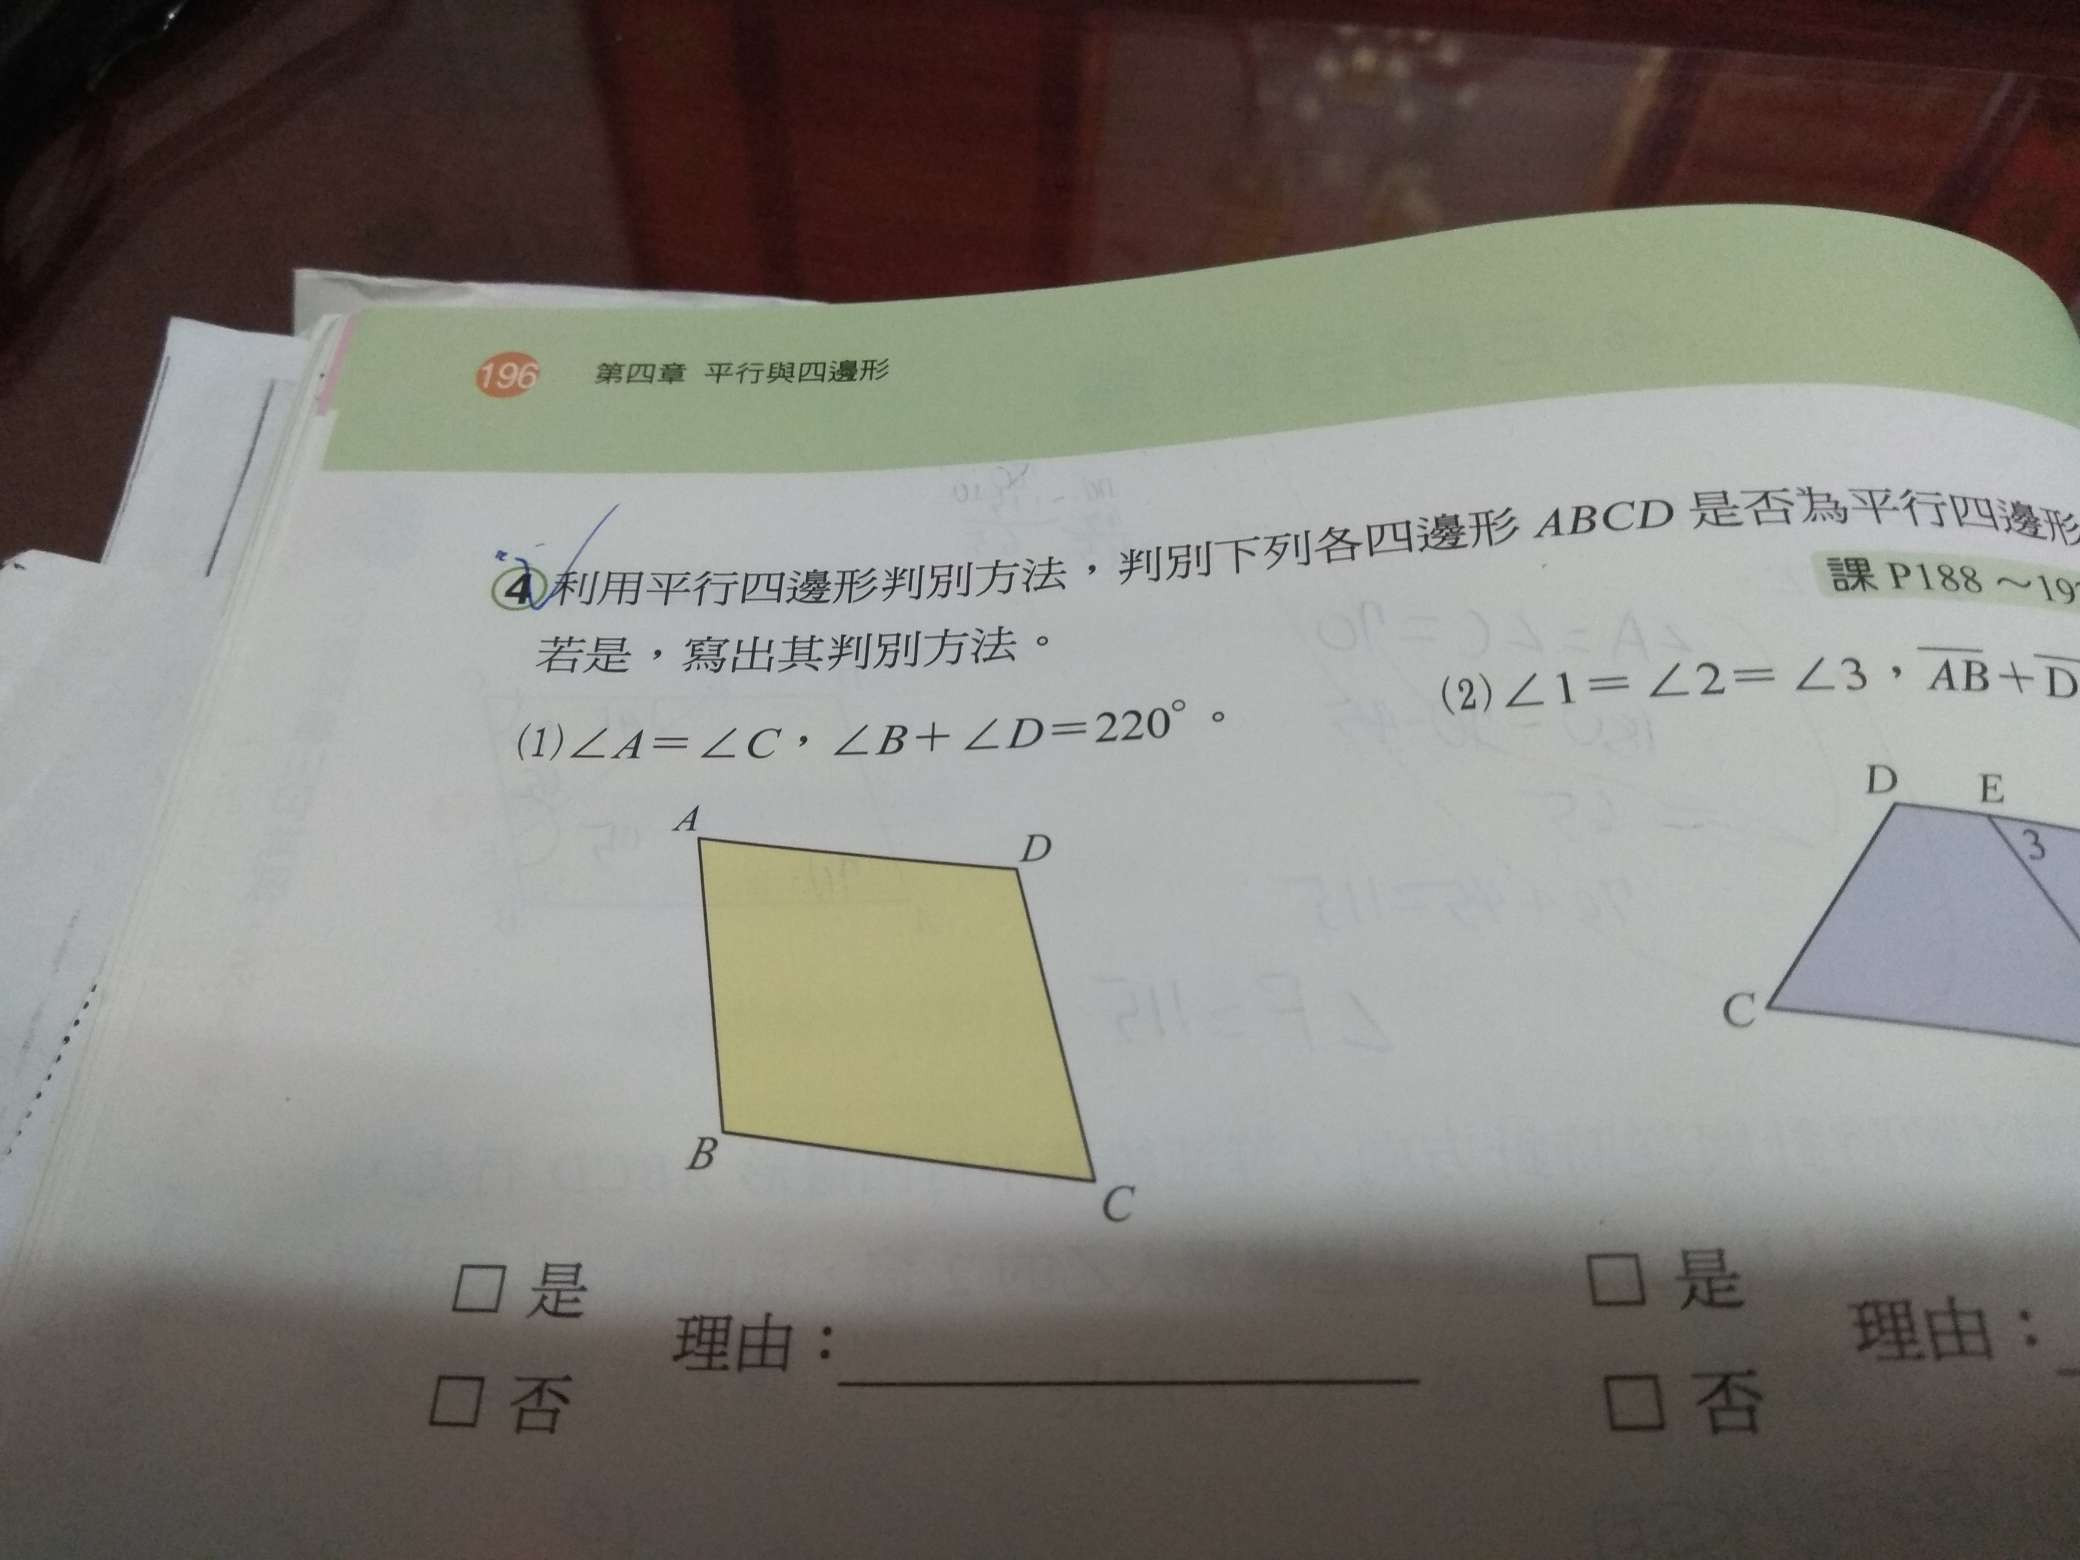 196 第四章 平行與四邊形
④利用平行四邊形判別方法，判別下列各四邊形 ABCD 是否為平行四邊形
課 P188～19
若是，寫出其判別方法。
(1)∠A=∠C，∠B+∠D=220°。
(2)∠1=∠2=∠3，AB+D
A
D
B
C
D
E
3
C
□是
□否
理由：
□是
□否
理由：